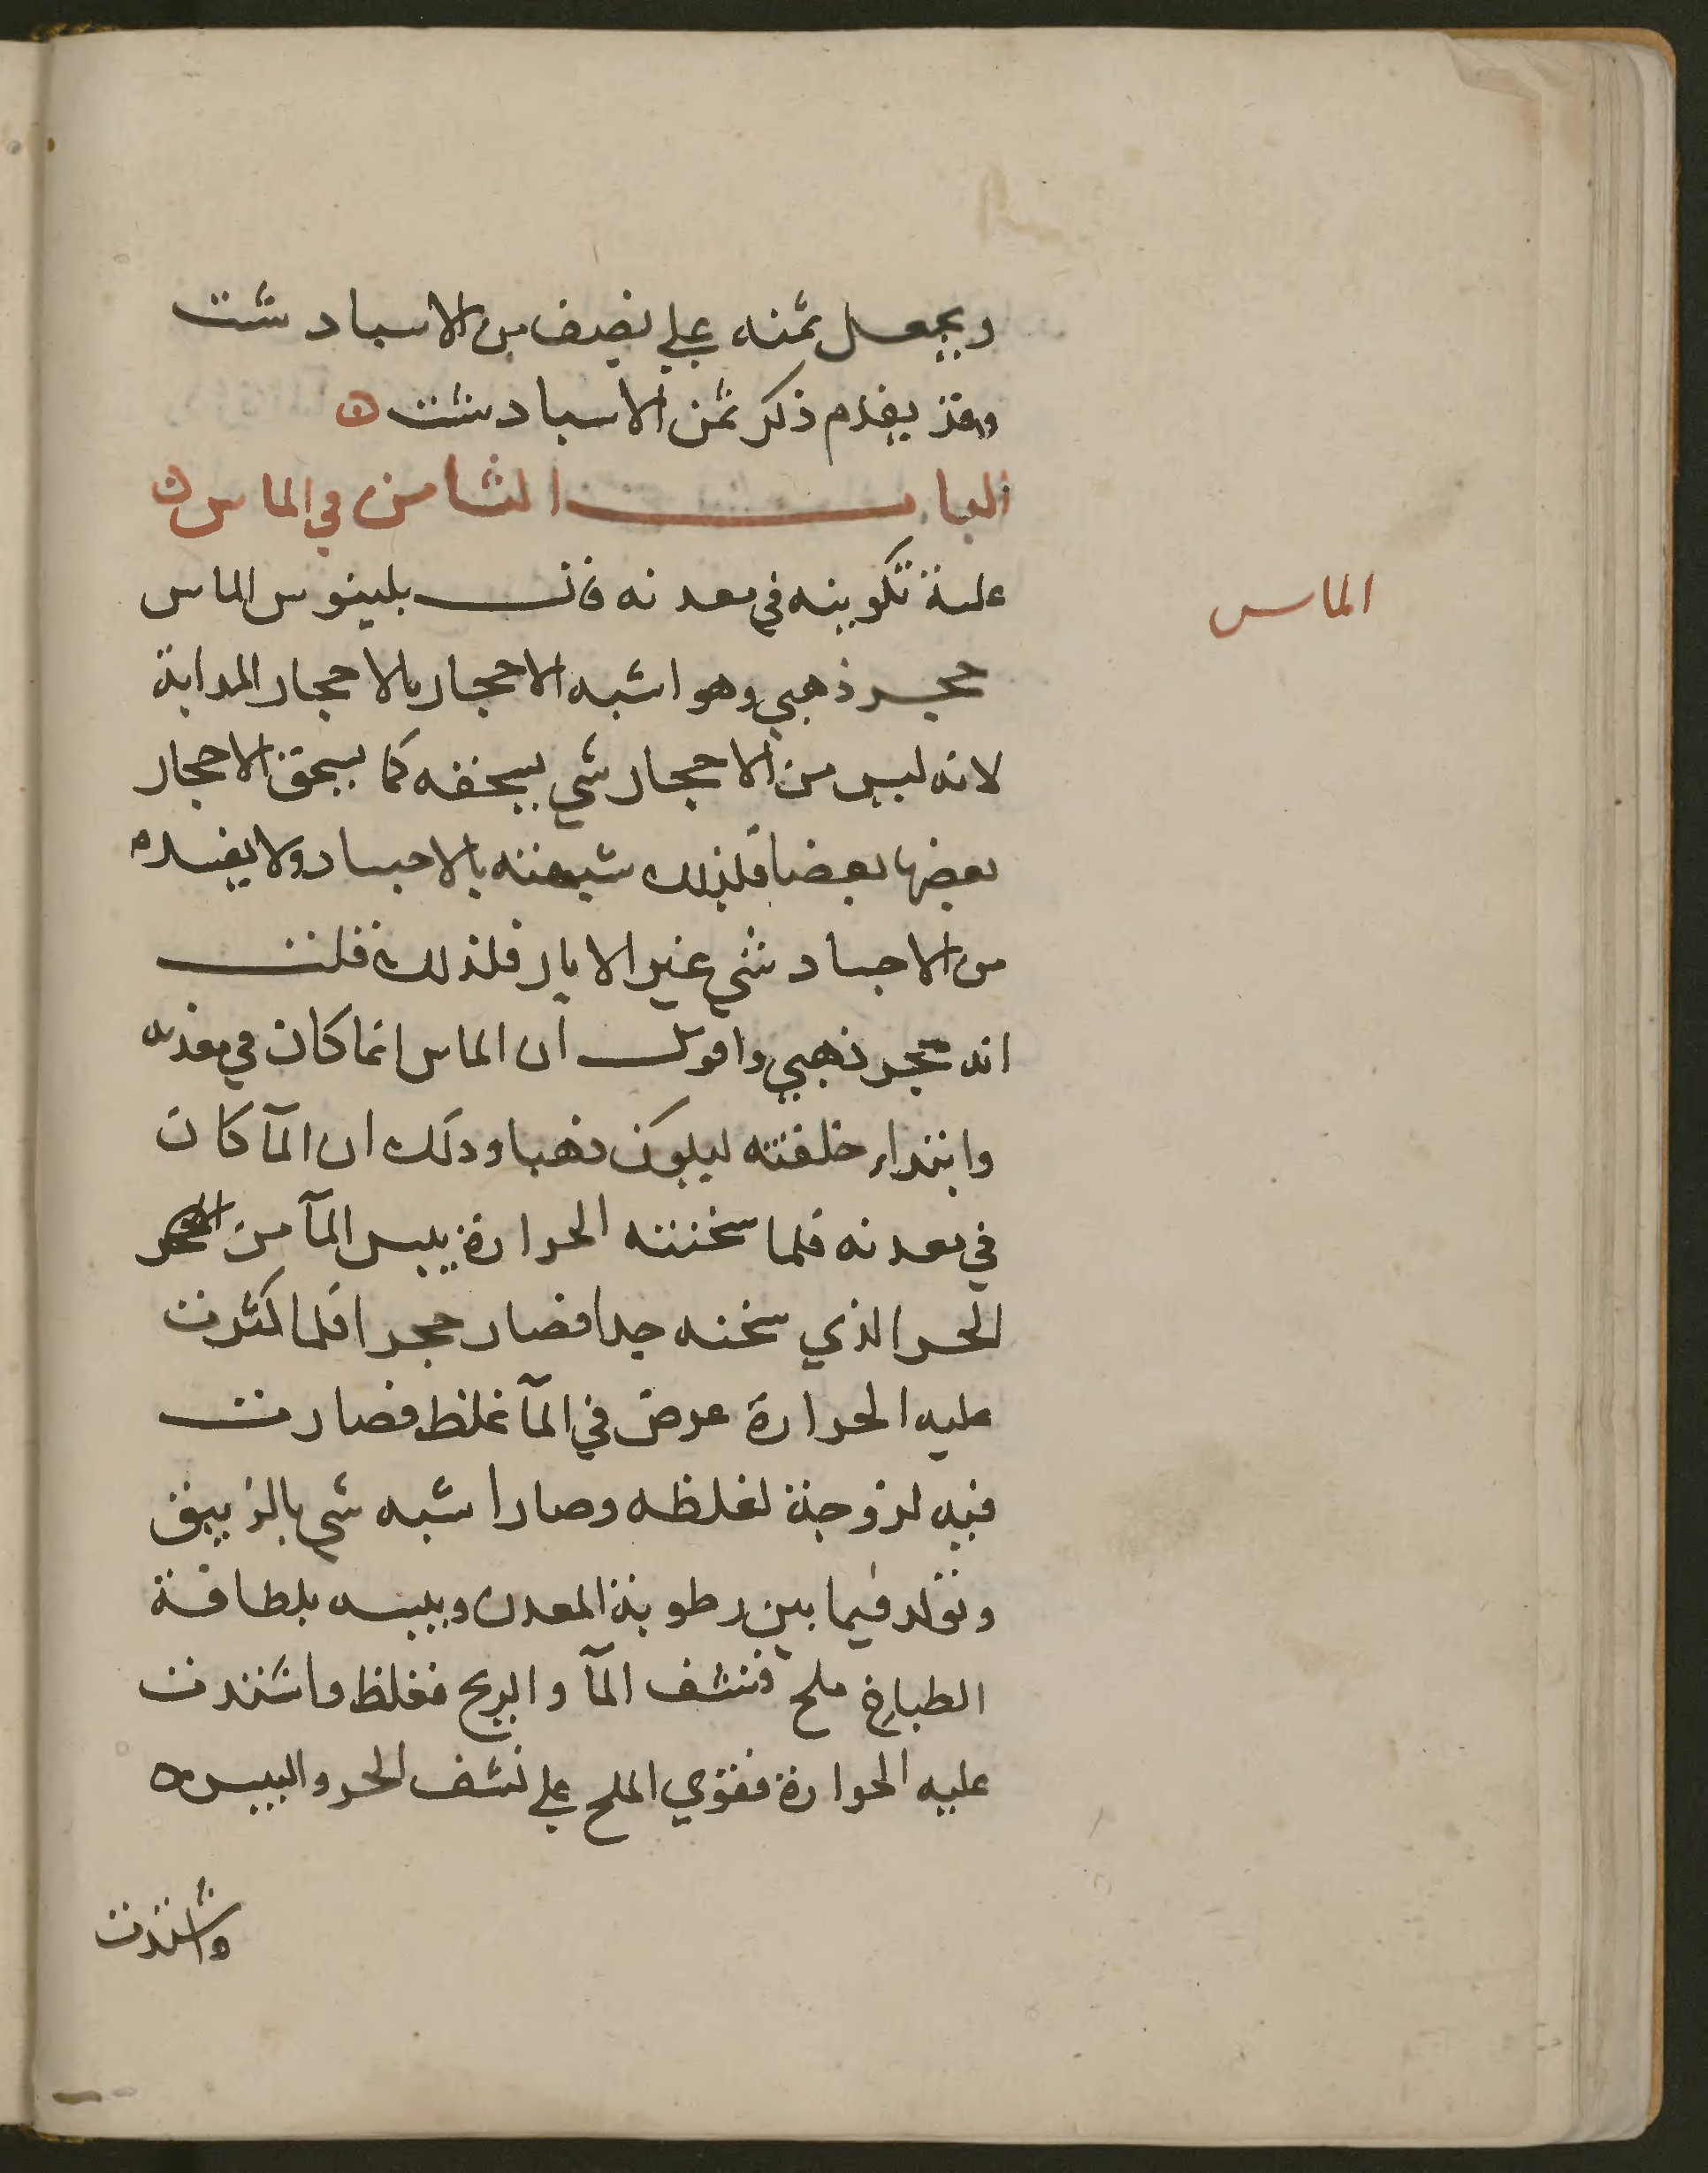 ويجعل ثمنه على نصف من الاسبادشت
وقد تقدم ذكر ثمن الاسبادشت ه
الباب الثامن في الماس ن
الماس
علة تكوينه في معدنه قال بلينوس الماس
حجر ذهبي وهو اشبه الاحجار بالاحجار المدابة
لانه ليس من الاحجار شي يسحقه كما يسحق الاحجار
بعضها بعضا فلذلك شبهته بالاجساد ولا يفسده
من الاجساد شي غير الابار فلذلك قلت
انه حجر ذهبي واقول ان الماس انما كان في معدنه
وابتداء خلقته ليكون ذهبا وذلك ان المآ كان
في معدنه فلما سخنته الحرارة يبس المآ من
الحر الذي سخنه جدا فصار حجرا فلما كثرت
عليه الحرارة عرض في المآ غلظ فصارت
فيه لزوجة لغلظه وصار اشبه شي بالزيبق
وتولد فيما بين رطوبة المعدن ويبسه بلطافة
الطباخ ملح فنشف المآ والريح فغلظ واشتدت
عليه الحرارة فقوي الملح على نشف الحر واليبس ه
واشتدت